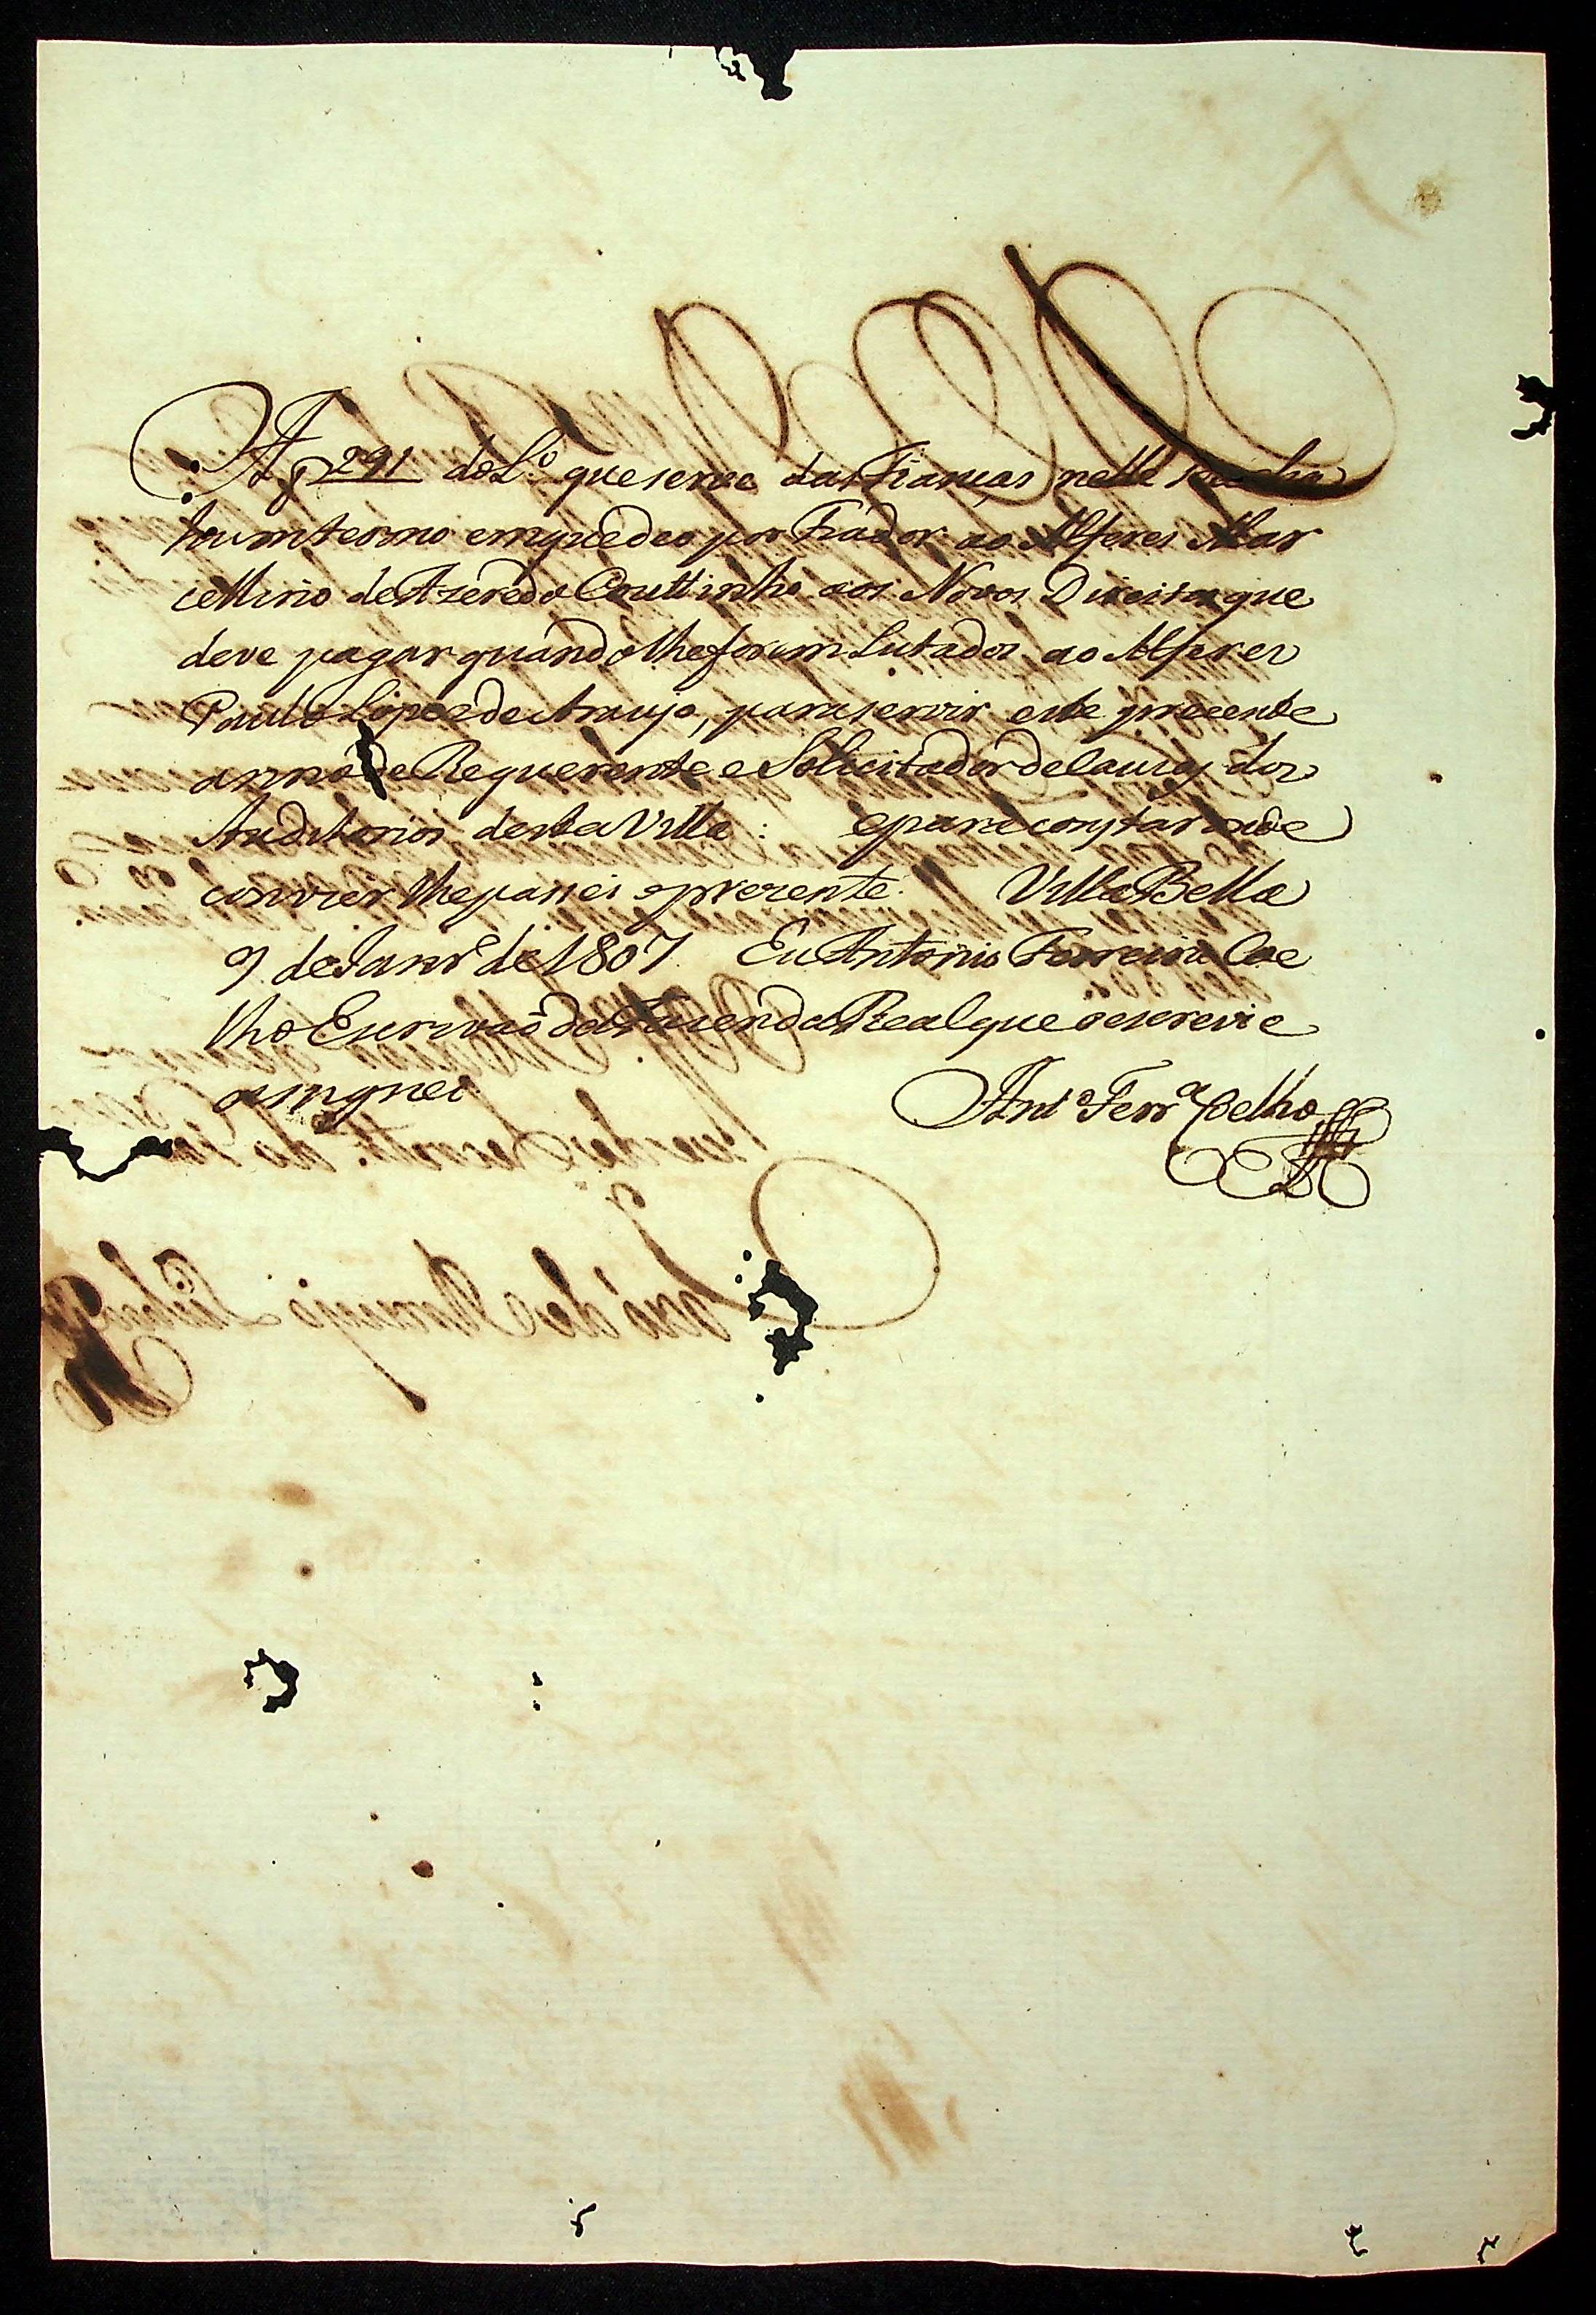 Af 291 do L.º que serve das Fianças nelle se acha
hum termo em que deo por Fiador ao Alferes Mar
cellino de Azeredo Couttinho aos Novos Direitos que
deve pagar quando lhe forem Lutados ao Alferes
Paulo Lopes de Araujo, para servir este prezente
anno de Requerente e Solicitador de Cauzas dos
Auditorios desta Villa : e para constar onde
convier lhe passei o prezente. Villa Bella
9 de Janr.º de 1807. Eu Antonio Ferreira Coe
lho Escrivaõ da Fazenda Real que o escrevi e
asigney
Ant.º Ferr.ª Coelho